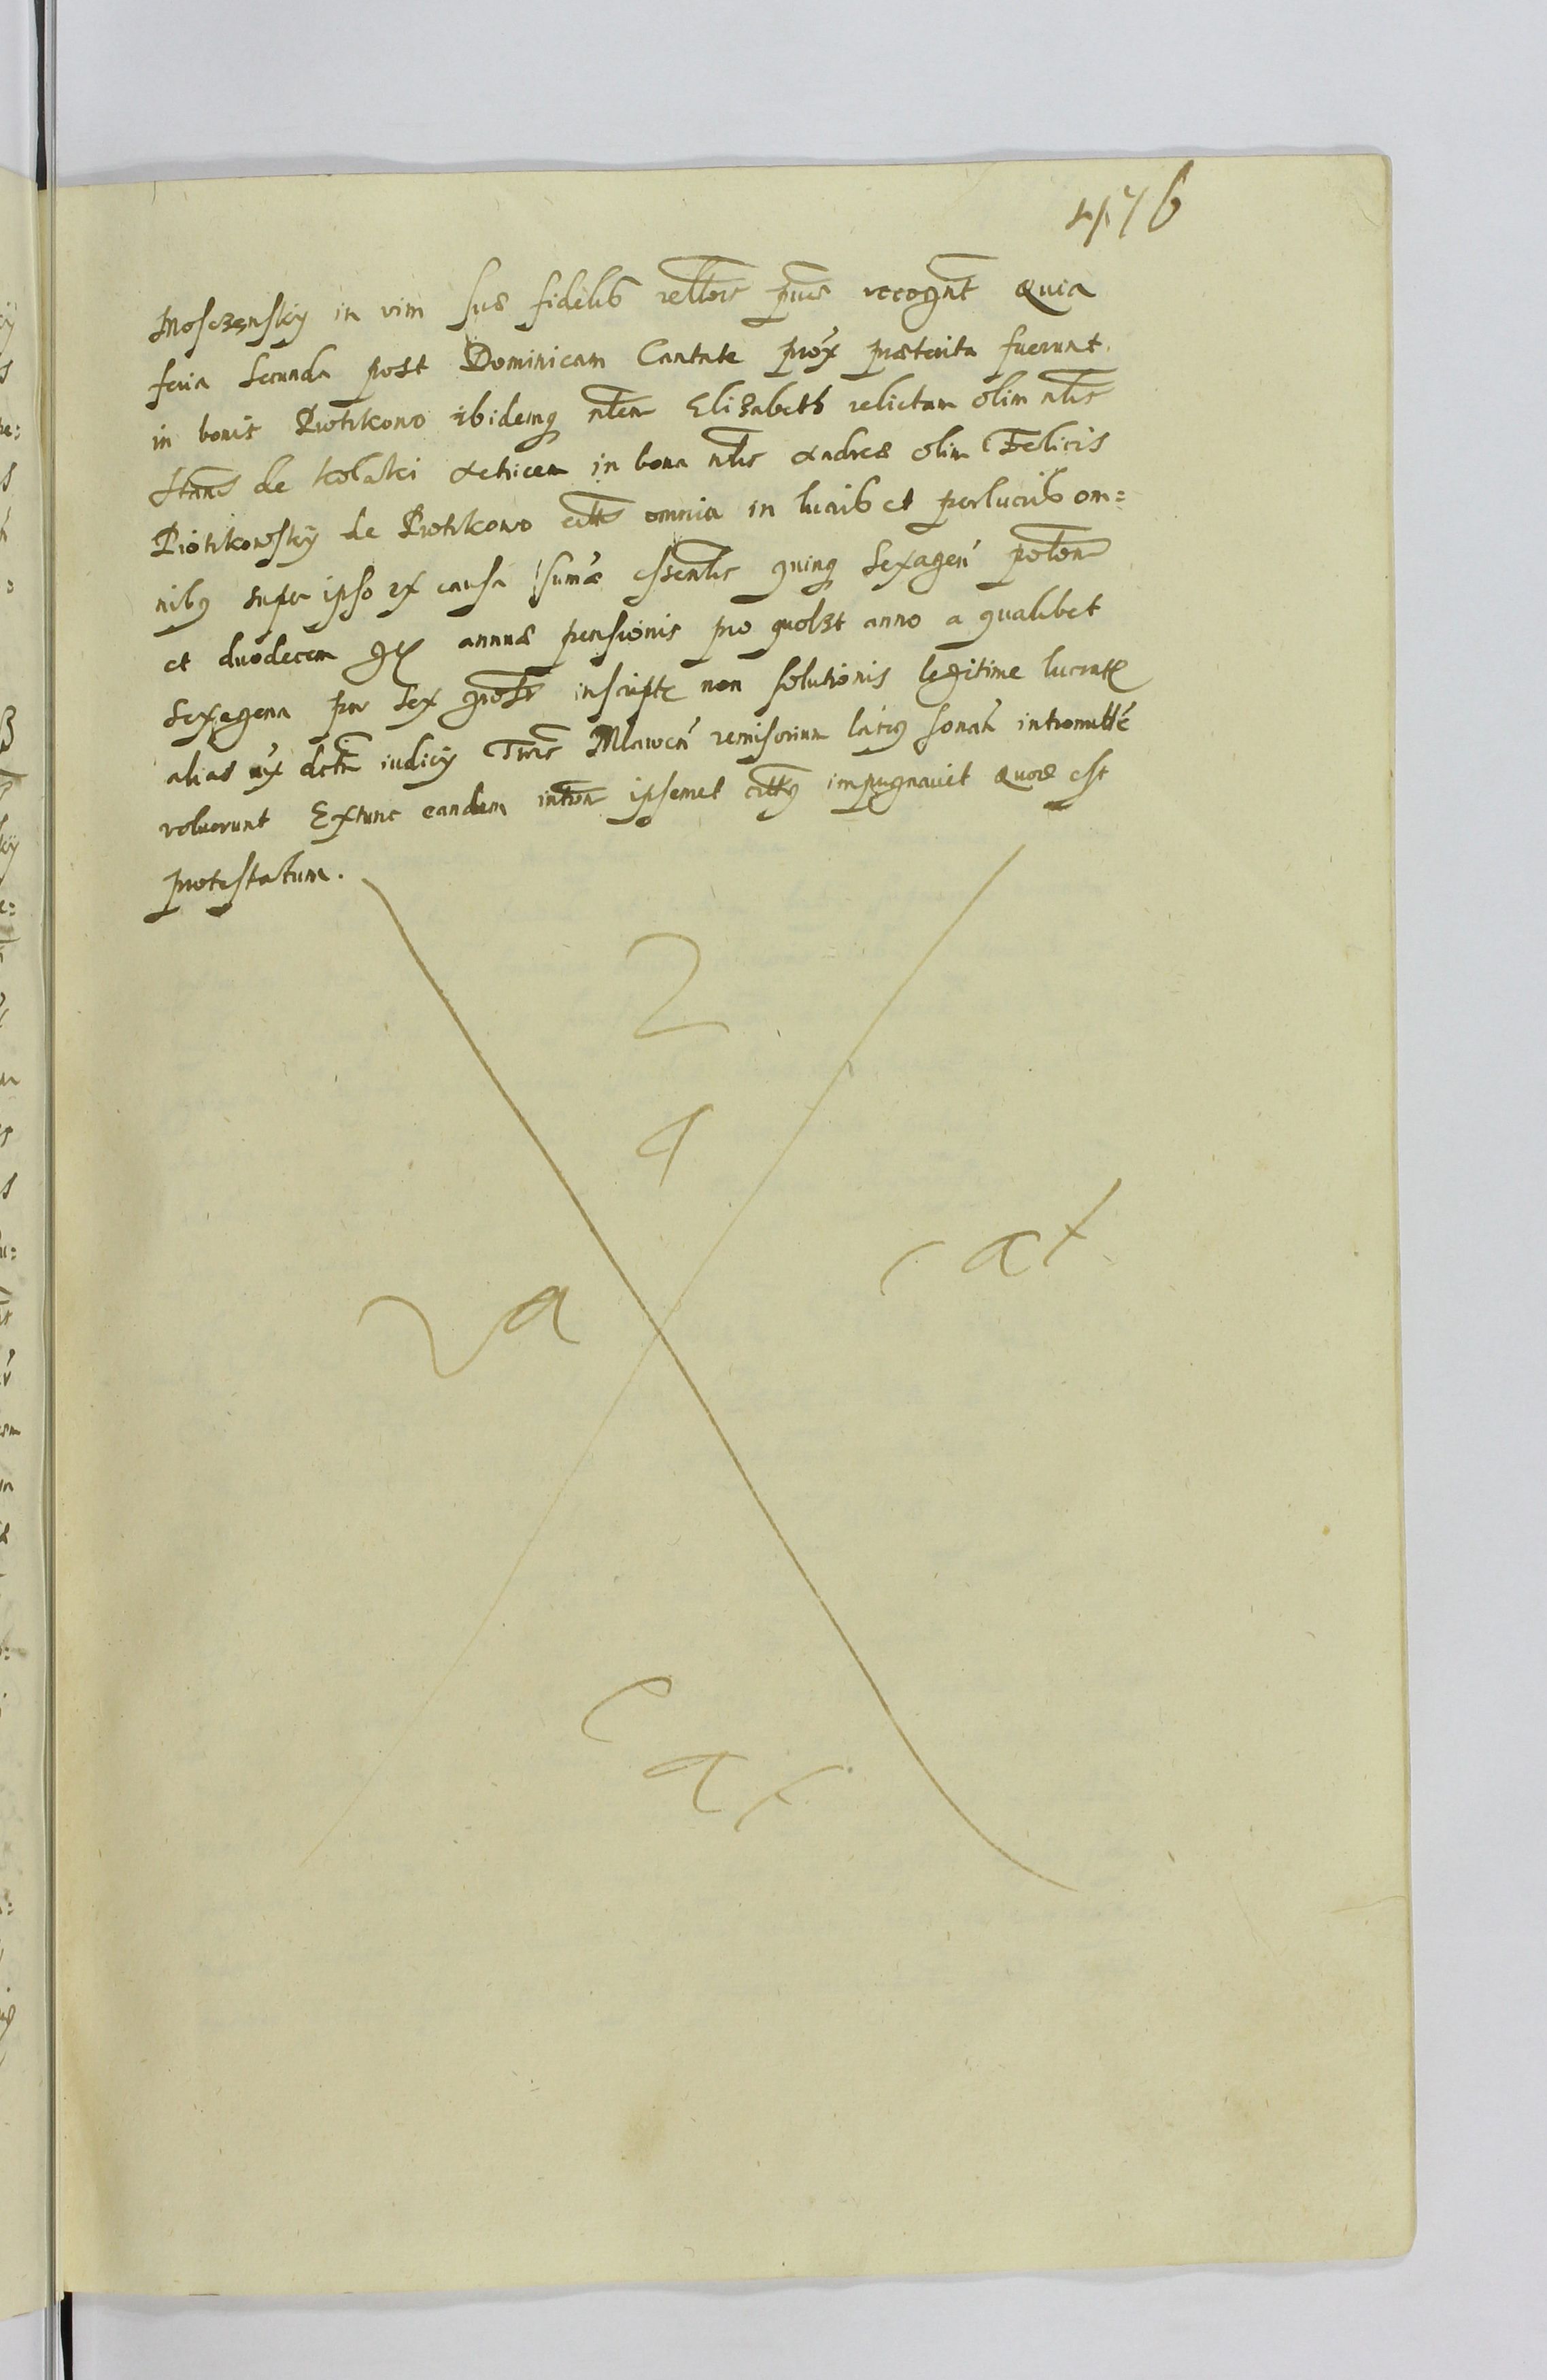 476
Mosczensky in vim suæ fidelib rellois pnæ recognt Quia
feria secunda post Dominicam Cantate prox præterita fuerunt
in bonis Piotrkowo ibidemq nlem Elizabeth relictam olim nlis
Stani de Kolaki actricem in bona nlis Andreæ olim Felicis
Piotrkowsky de Piotrkowo citti omnia in lucrib et perlucrib om=
nibq super ipso ex causa sumæ essentlis quinq sexagen
et duodecem annuæ pensionis pro quolzt anno a qualibet
sexagena per sex gross inscripte non solutionis legitime lucrate
alias ex dcto iudicy Tris Mlawen remisorium latiq sonan intromitte
voluerunt Extunc eandem intron ipsemet cittq impugnavit Quos est
protestatum.
va
cat
va
cat